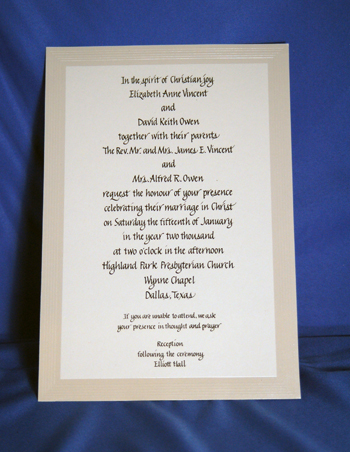 In the spirit of Christian joy
Elizabeth Anne Vincent
and
David Keith Owen
together with their parents
The Rev. Mr. and Mrs. James E. Vincent
and
Mrs. Alfred R. Owen
request the honour of your presence
celebrating their marriage in Christ
on Saturday the fifteenth of January
in the year two thousand
at two o'clock in the afternoon
Highland Park Presbyterian Church
Wynne Chapel
Dallas, Texas
If you are unable to attend, we ask
your presence in thought and prayer
Reception
following the ceremony
Elliott Hall